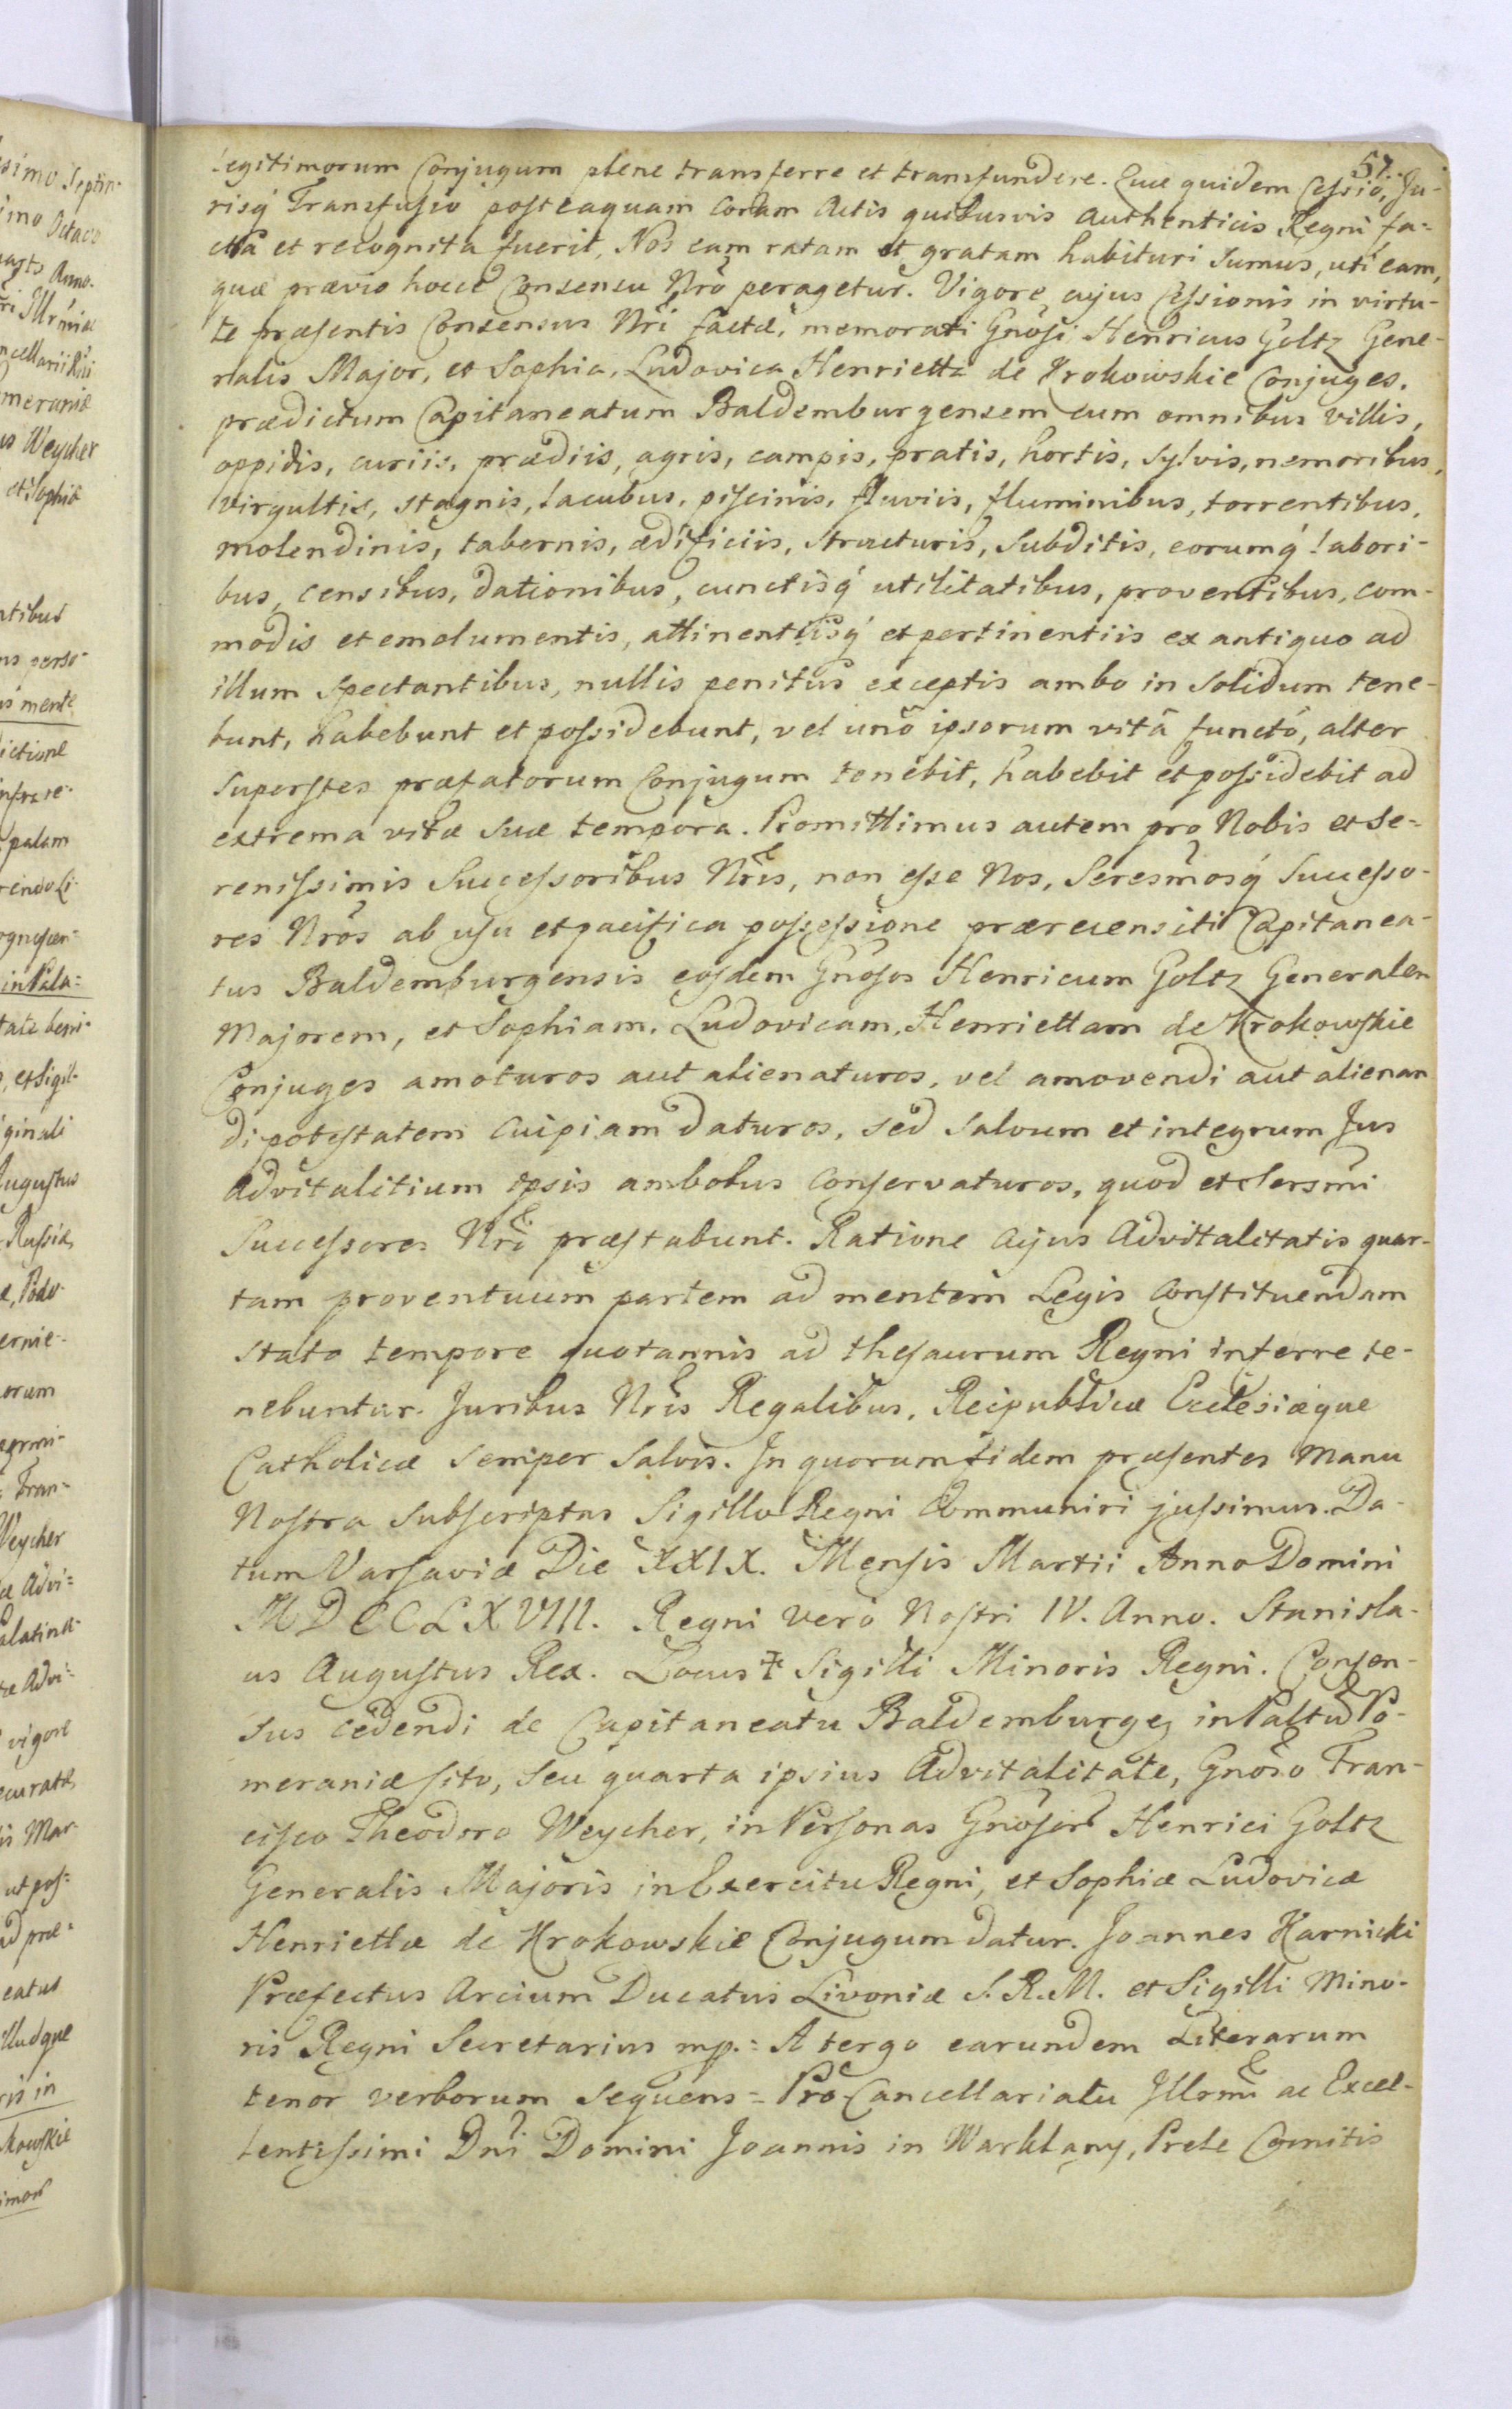 57.
legitimorum Conjugum plene transferre et transfundere. Quæ quidem Cessio, Ju-
risq́ Transfusio posteaquam coram Actis quibusvis authenticis Regni fa-
cta et recognita fuerit, Nos eam ratam et gratam habituri sumus, uti eam,
quæ prævio hocce Consensu Nr̃o peragetur. Vigore cujus Cessionis in virtu-
te præsentis Consensus Nr̃i factæ, memorati Gnõsi Henricus Goltz Gene-
ralis Major, et Sophia, Ludovica Henrietta de Krokowskie Conjuges.
prædictum Capitaneatum Baldemburgensem cum omnibus villis,
oppidis, curiis, prædiis, agris, campis, pratis, hortis, sylvis, nemoribus,
virgultis, stagnis, lacubus, piscinis, fluviis, fluminibus, torrentibus,
molendinis, tabernis, ædificiis, structuris, subditis, eorumq́ labori-
bus, censibus, dationibus, cunctisq́ utilitatibus, proventibus, com-
modis et emolumentis, attinentiisq́ et pertinentiis ex antiquo ad
illum spectantibus, nullis penitus exceptis ambo in solidum tene-
bunt, habebunt et possidebunt, vel unô ipsorum vitâ functô, alter
superstes præfatorum Conjugum tenebit, habebit et possidebit ad
extrema vitæ suæ tempora. Promittimus autem pro Nobis et Se-
renissimis Successoribus Nr̃is, non esse Nos, Seresm̃osq́ Successo-
res Nr̃os ab usu et pacifica possessione prærecensiti Capitanea-
tus Baldemburgensis eosdem Gnõsos Henricum Goltz Generalem
Majorem, et Sophiam, Ludovicam, Henriettam de Krokowskie
Conjuges amoturos aut alienaturos, vel amovendi aut alienan
di potestatem cuipiam daturos, sed salvum et integrum Jus
Advitalitium ipsis ambobus conservaturos, quod et Sersm̃i
Successores Nr̃i præstabunt. Ratione cujus Advitalitatis quar-
tam proventuum partem ad mentem Legis constituendam
stato tempore quotannis ad thesaurum Regni inferre te-
nebuntur. Juribus Nr̃is Regalibus, Reipublicæ Ecclesiæque
Catholicæ semper salvis. In quorum fidem præsentes Manu
Nostra subscriptas Sigillo Regni Communiri jussimus. Da-
tum Varsaviæ Die XXIX. Mensis Martii Anno Domini
MDCCLXVIII. Regni vero Nostri IV. Anno. Stanisla-
us Augustus Rex. Locus ‡ Sigilli Minoris Regni. Consen-
sus cedendi de Capitaneatu Baldemburgeñ in Paltũ Po-
meraniæ sito, seu quarta ipsius Advitalitate, Gnõso Fran-
cisco Theodoro Weycher, in Personas Gnõsor̃ Henrici Goltz
Generalis Majoris in Exercitu Regni, et Sophiæ Ludovicæ
Henriettæ de Krokowskie Conjugum datur. Joannes Karnicki
Præfectus Arcium Ducatus Livoniæ S. R. M. et Sigilli Mino-
ris Regni Secretarius mp.= A tergo earundem Literarum
tenor verborum sequens = Pro-Cancellariatu Illsm̃i ac Excel-
lentissimi Dñi Domini Joannis in Warklany, Prele Comitis